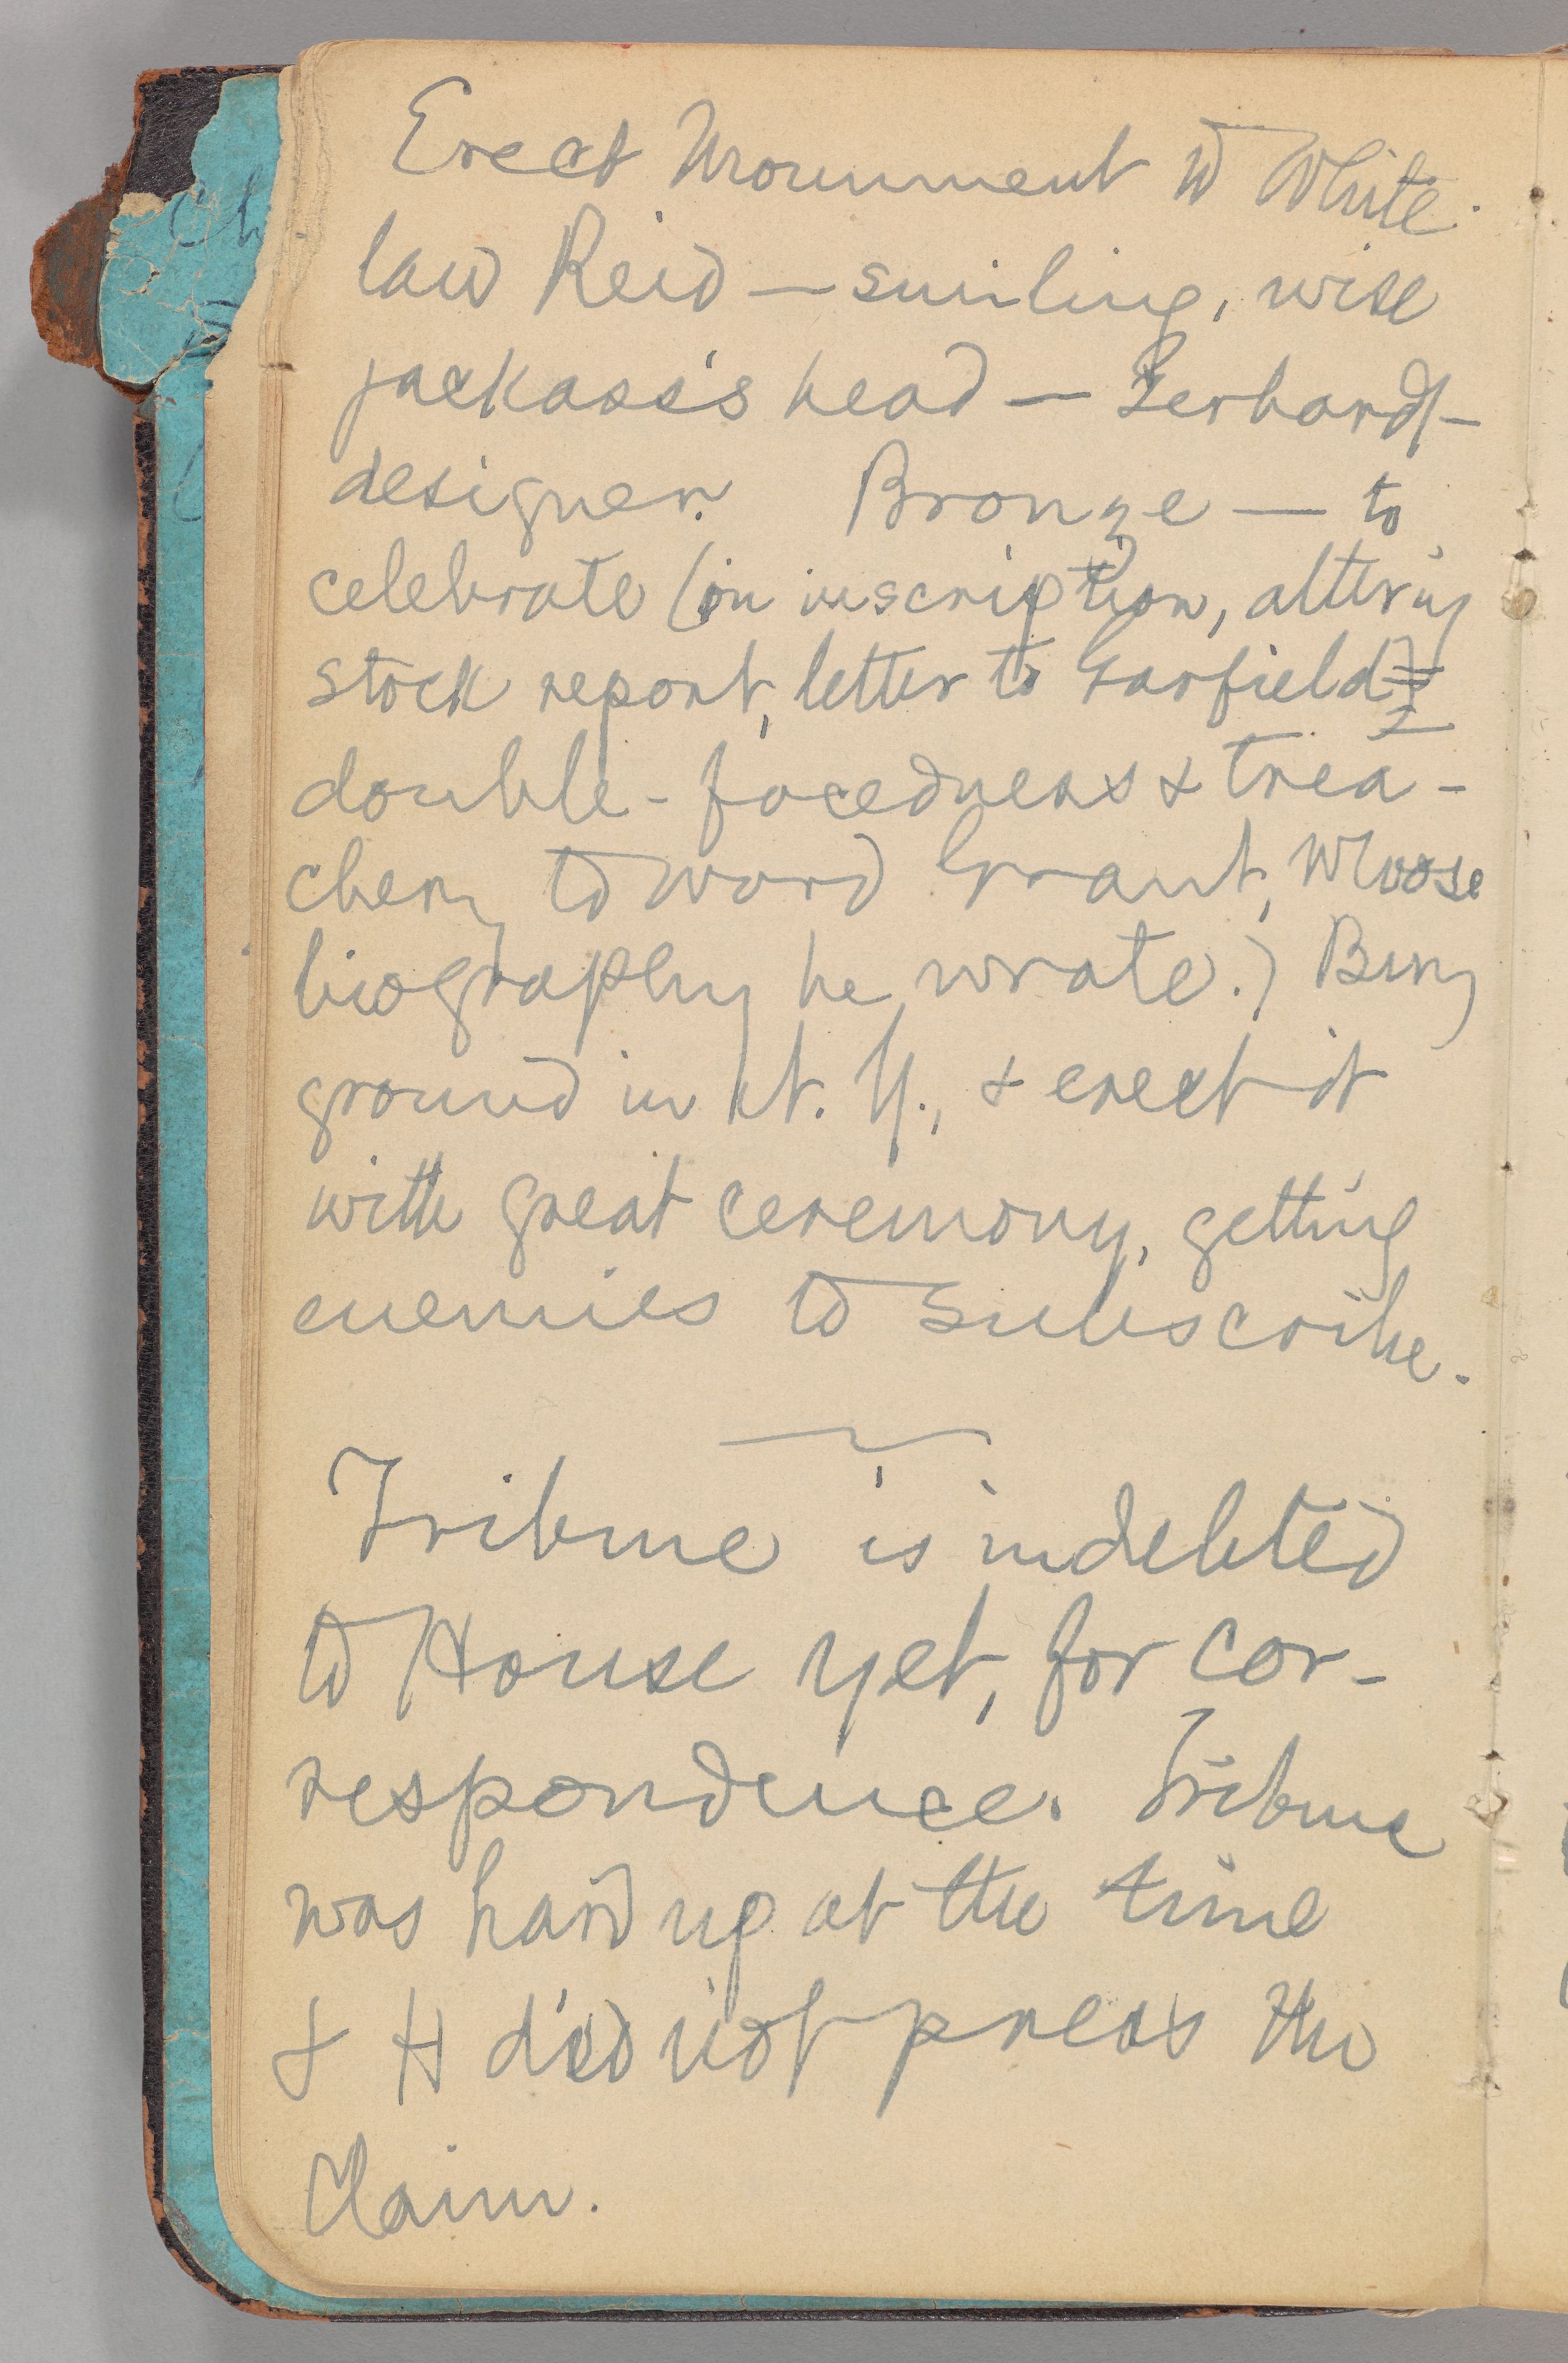 Erect Monument to White-
law Reid — smiling, wise
jackass's head — Gerhardt
designer. Bronze — to
celebrate (in inscription, altering
stock report, letter to Garfield,
double-facedness & trea-
chery toward Grant, whose
biography he wrote.) Buy
ground in N. Y., & erect it
with great ceremony, getting
enemies to subscribe.
Tribune is indebted
to House yet, for cor-
respondence. Tribune
was hard up at the time
& H did not press the
claim.